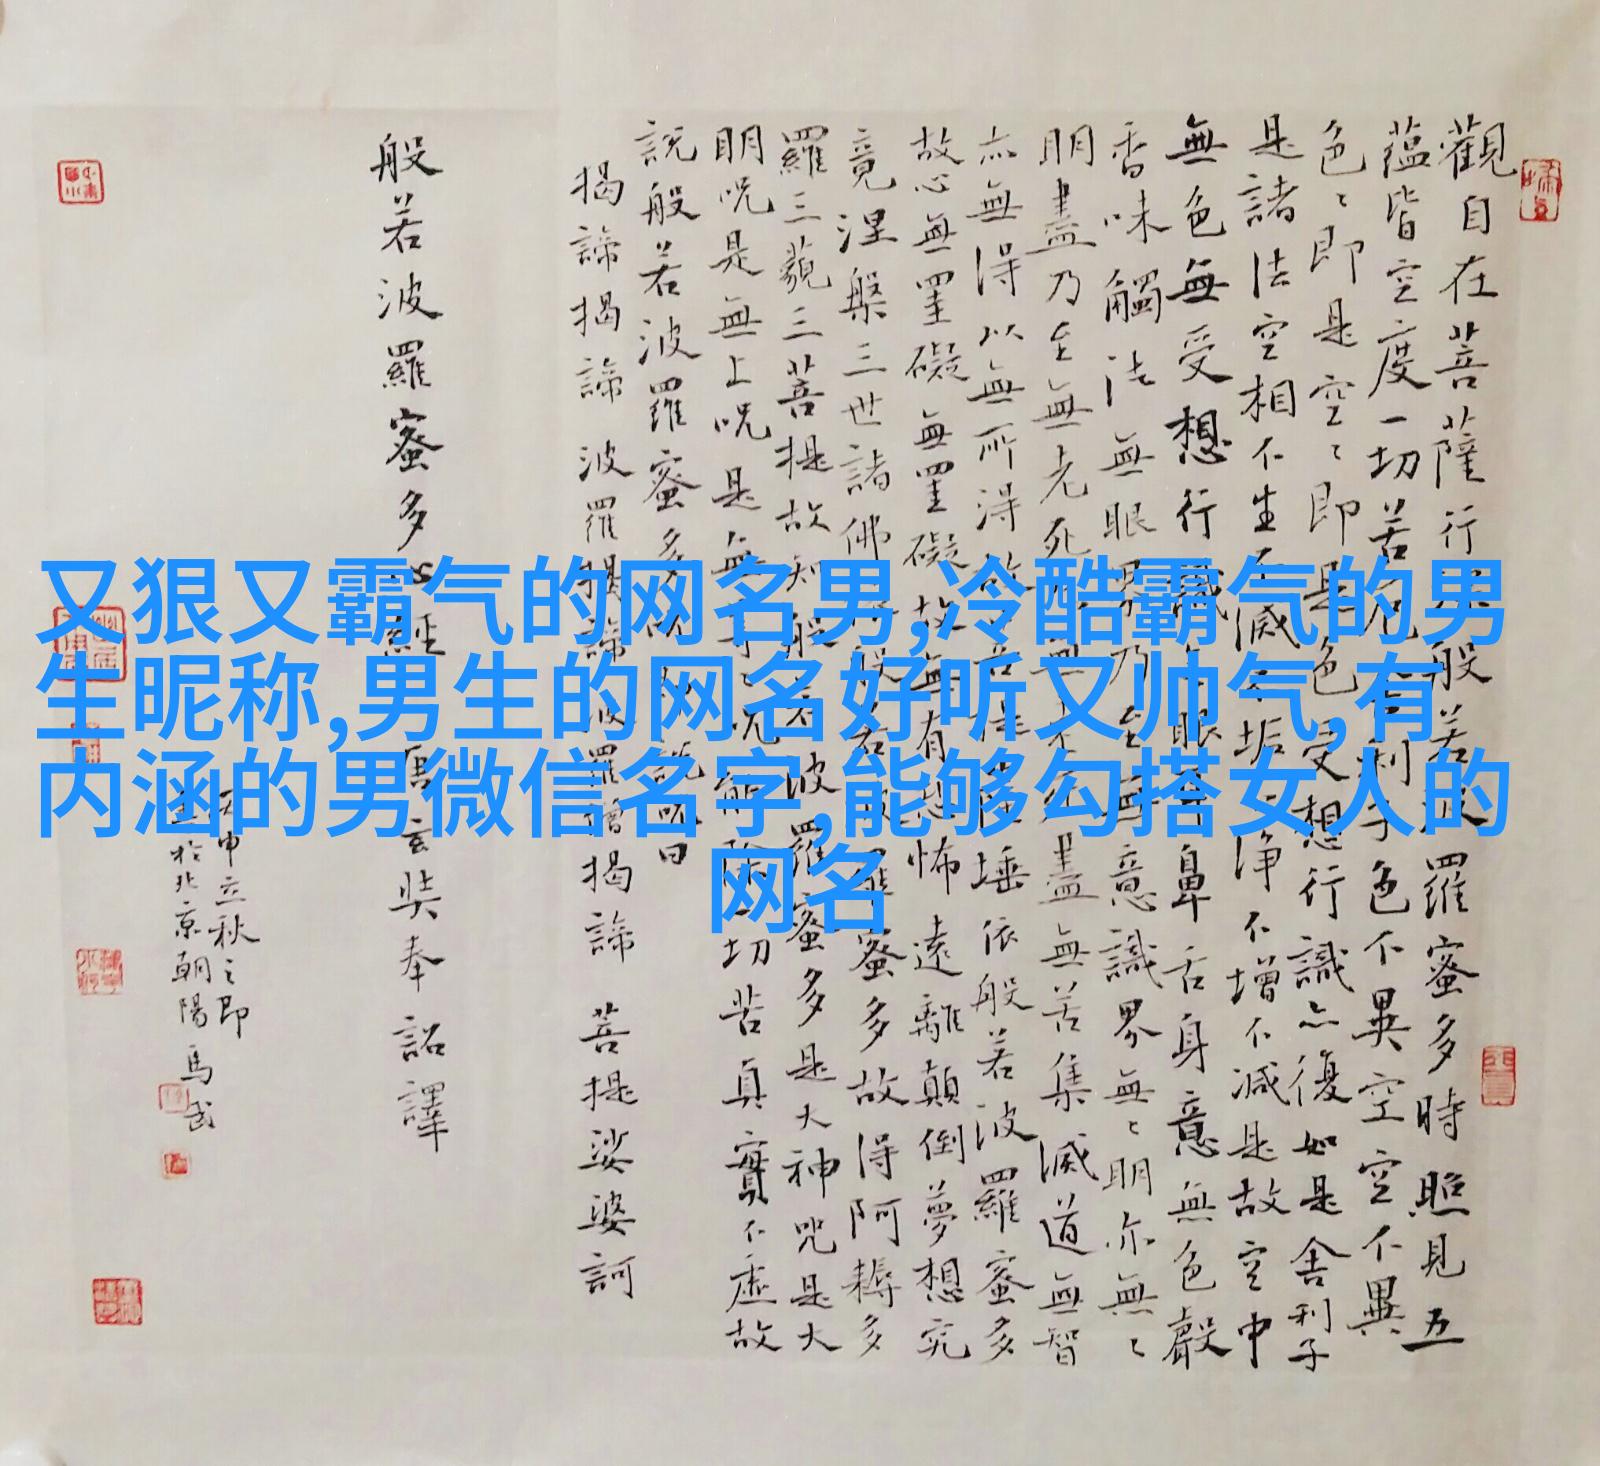 又狠又霸气的网名男,冷酷霸气的男
生昵称,男生的网名好听又帅气,有
内涵的男微信名字,能够勾搭女人的
网名
觀自在菩薩行般若波羅蜜多時照見五
蘊皆空度一切苦厄舍利子色不異空空不異
色〻即是空〻即是色受想行識亦復如是舍利子
是諸法空相不生不滅不垢不淨不增不減是故空中
無色無受想行識無眼耳鼻舌身意無色聲
香味觸法無眼界乃至無意識界無〻明亦無〻
明盡乃至無老死亦無老死盡無苦集滅道無智
亦無得以無所得故菩提薩埵依般若波羅蜜多
故心無罣礙無罣礙故無有恐怖遠離顛倒夢想究
竟涅槃三世諸佛依般若波羅蜜多故得阿耨多
羅三藐三菩提故知般若波羅蜜多是大神咒是大
明呪是無上呪是無等〻呪能除一切苦真實不虛故
說般若波羅蜜多呪即說呪曰
揭諦揭諦 波羅揭諦 波羅僧揭諦 菩提娑婆訶
般若波羅蜜多心經 唐玄奘奉詔譯
申立秋之即
於北京朝陽 馬武